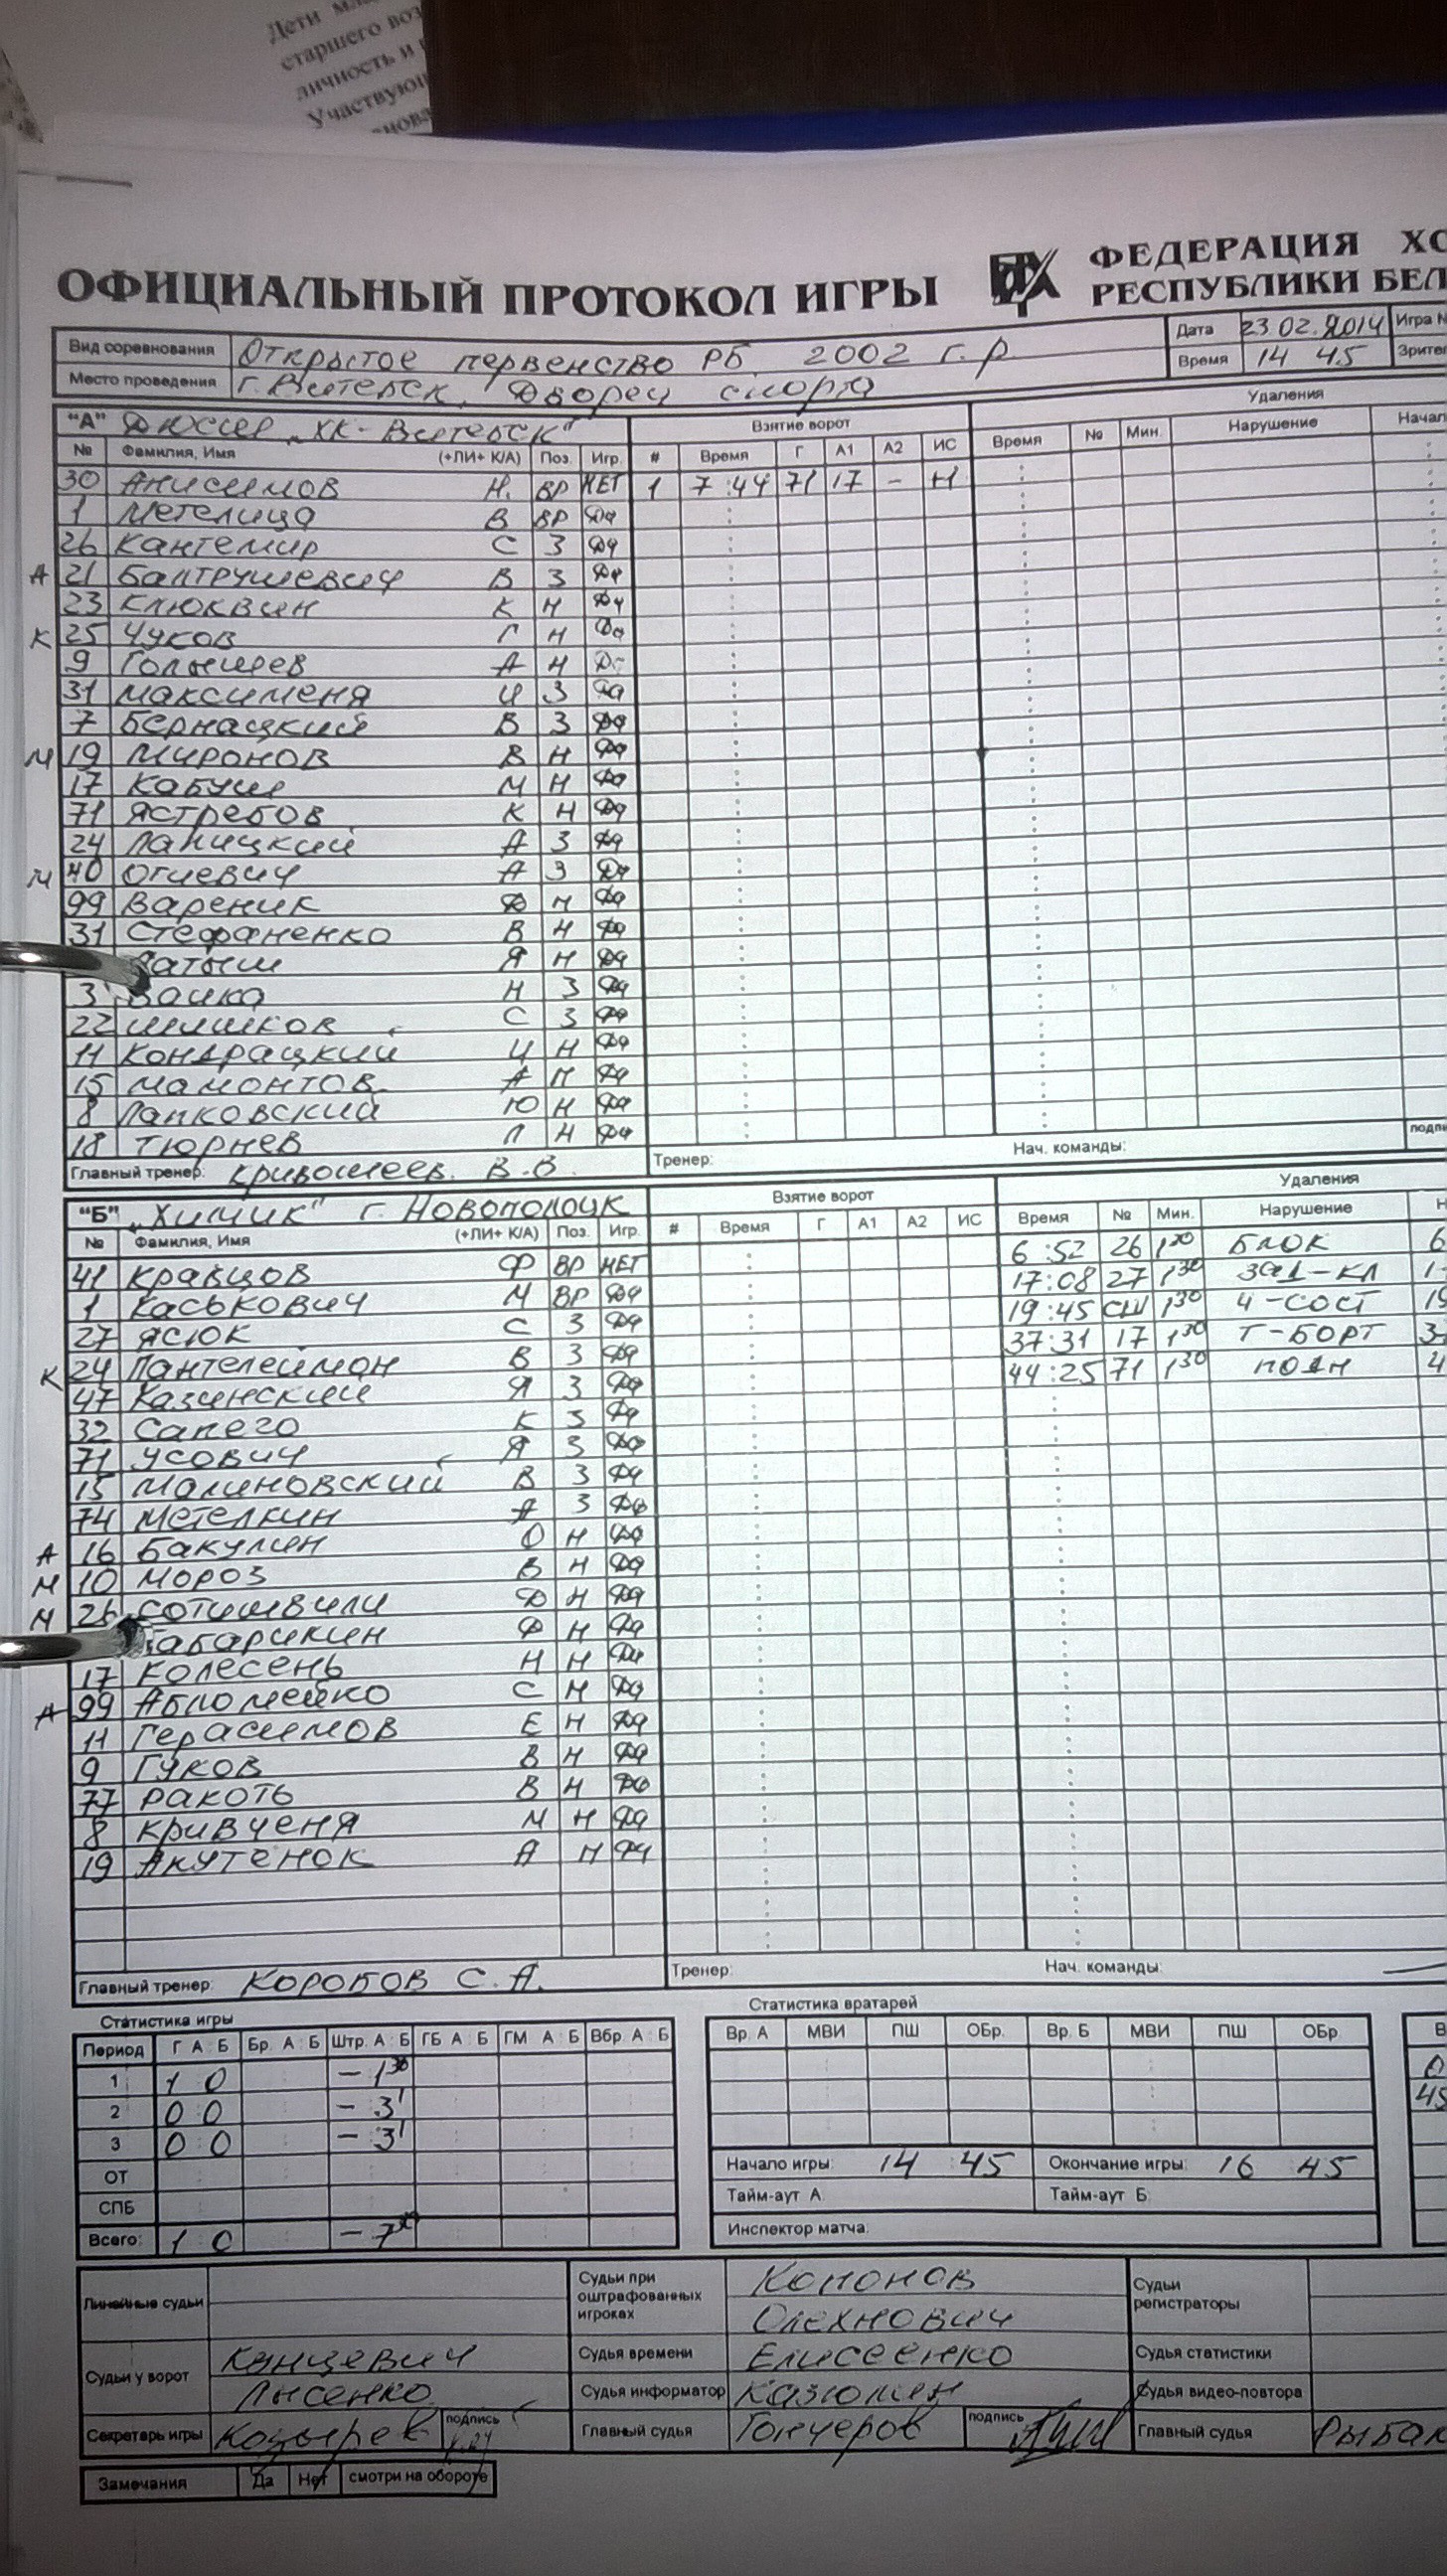 Дети
старшего воз
личность и
Участвую
ОФИЦИАЛЬНЫЙ ПРОТОКОЛ ИГРЫ ФЕДЕРАЦИЯ ХО
РЕСПУБЛИКИ БЕЛ
Вид соревнования Открытое первенство РБ 2002 г.р Дата 23.02.2014 Игра №
Место проведения г. Витебск. Дворец спорта Время 14 45 Зрите
"А" ДЮСШ "ХК-Витебск" Взятие ворот Удаления
№ Фамилия, Имя (+ЛИ+ К/А) Поз. Игр. # Время Г А1 А2 ИС Время № Мин. Нарушение Начал
30 Анисимов Н. ВР НЕТ 1 7:44 71 17 - +1
1 Метелица В ВР Да
26 Кантемир С З Да
А 21 Балтрушевич В З Да
23 Клюквин К Н Да
К 25 Чуков Г Н Да
9 Голышев А Н Да
31 Максименя И З Да
7 Бернацкий В З Да
М 19 Миронов В Н Да
17 Кабуш М Н Да
71 Ястребов К Н Да
24 Ланицкий А З Да
М 40 Огиевич А З Да
99 Вареник Ф Н Да
31 Стефаненко В Н Да
Латыш Я Н Да
3 Заика Н З Да
22 Шишков С З Да
11 Кондрацкий И Н Да
15 Мамонтов А Н Да
8 Лапковский Ю Н Да
18 Тюрнев Л Н Да
Главный тренер: Кривошеев. В.В. Тренер: Нач. команды: подпи
"Б" "Химик" г. Новополоцк Взятие ворот Удаления
№ Фамилия, Имя (+ЛИ+ К/А) Поз. Игр. # Время Г А1 А2 ИС Время № Мин. Нарушение Н
41 Кравцов Ф ВР НЕТ 6:52 26 1 30 БЛОК 6
1 Каськович М ВР Да 17:08 27 1 30 ЗАД-КЛ 1
27 Ясюк С З Да 19:45 СШ 1 30 Ч-СОСТ 19
К 24 Пантелеймон В З Да 37:31 17 1 30 Т-БОРТ 3
47 Казинский Я З Да 44:25 71 1 30 ПОДН 4
32 Сапего К З Да
71 Усович Я З Да
15 Малиновский В З Да
74 Метелкин А З Да
А 16 Бакулин О Н Да
М 10 Мороз В Н Да
М 26 Сотишвили Ф Н Да
Табарикин Ф Н Да
17 Колесень Н Н Да
А 99 Абломейко С Н Да
11 Герасимов Е Н Да
9 Гуков В Н Да
77 Ракоть В Н Да
8 Кривченя М Н Да
19 Акутенок А Н Да
Главный тренер: Коробов С.А. Тренер: Нач. команды:
Статистика игры Статистика вратарей
Период Г А Б Бр. А Б Штр. А Б ГБ А Б ГМ А Б Вбр. А Б Вр. А МВИ ПШ ОБр. Вр. Б МВИ ПШ ОБр
1 1 0 - 1 30
2 0 0 - 3'
3 0 0 - 3'
ОТ Начало игры: 14 45 Окончание игры: 16 45
СПБ Тайм-аут А: Тайм-аут Б:
Всего: 1 0 - 7 30 Инспектор матча:
Линейные судьи Судьи при оштрафованных игроках Кононов Олехнович Судьи регистраторы
Судьи у ворот Канцевич Судья времени Елисеенко Судья статистики
Лысенко Судья информатор Казюлин Судья видео-повтора
Секретарь игры Козырев подпись Главный судья Гончеров подпись Главный судья Рыбак
Замечания Да Нет смотри на обороте